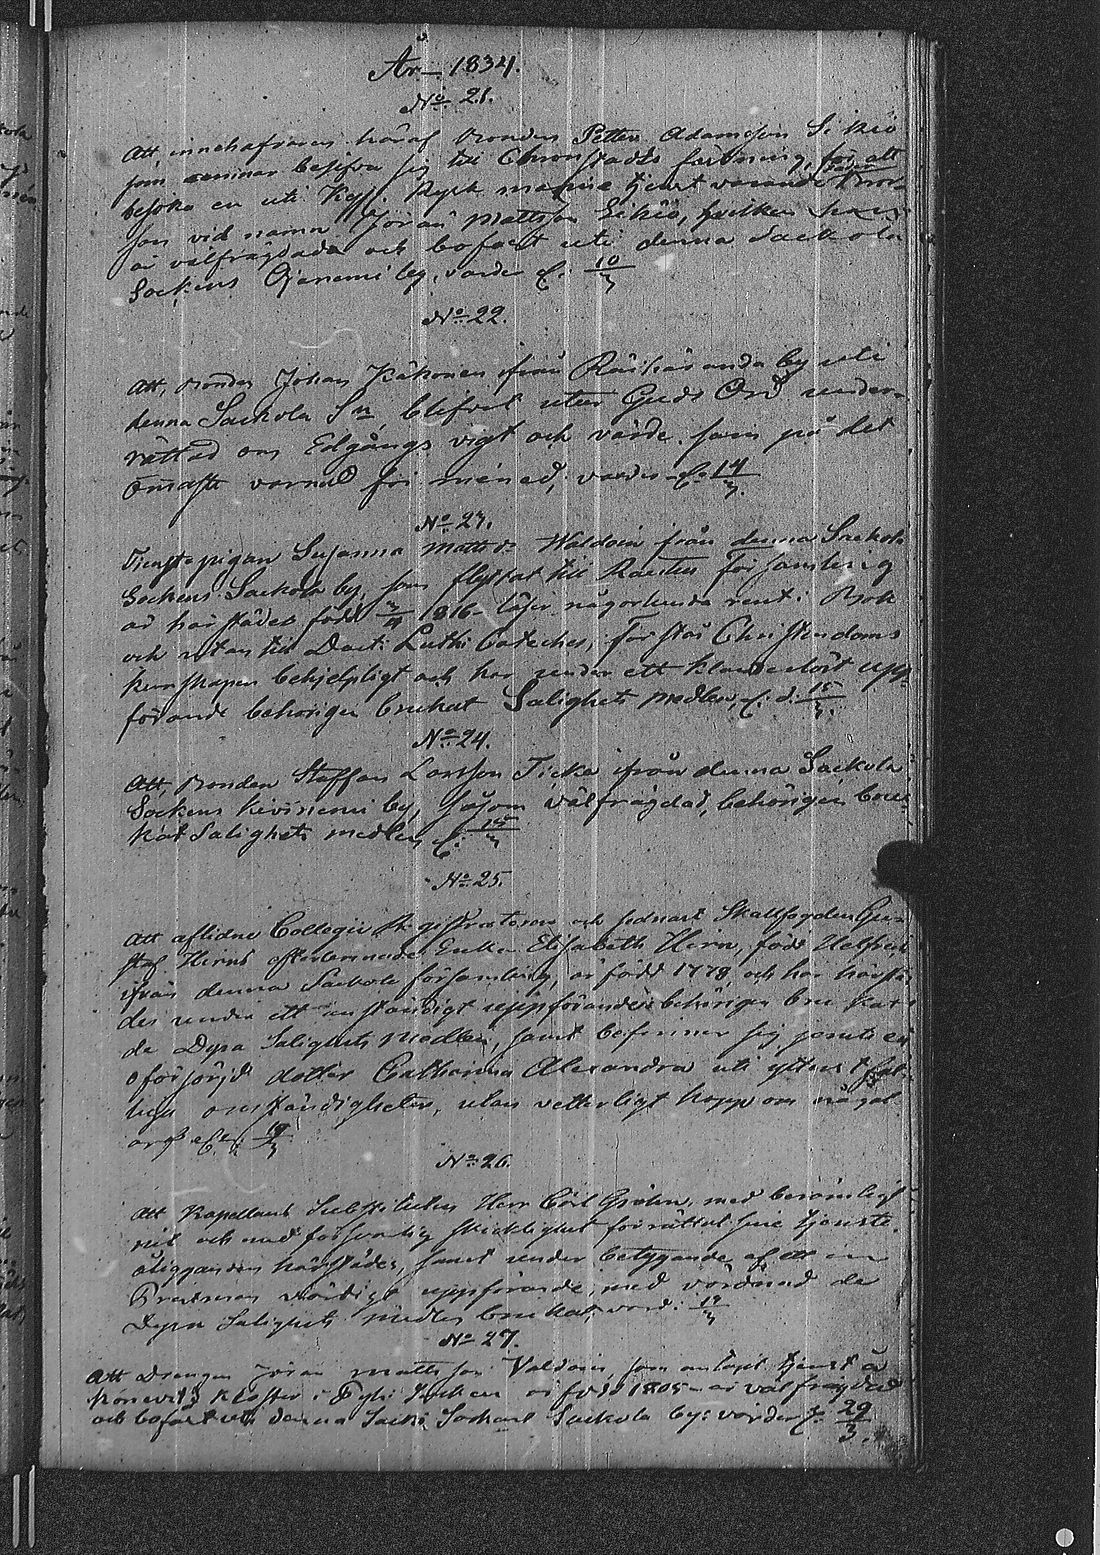 År 1834.
No 21.
Att innehafvaren häraf Bonden Petter Adamsson Sikiö
som ämnar begifva sig till Chronstadts fästning, för att
besöka en uti Kejs. Rysk marine tjenst varande
son vid namn Jöran Mattsson Sikiö, hvilken
är välfrägdad och bofast uti denna Sackola
Sockens by, varder C. 10/3
No 22.
Att, Bonden Johan Käkönen ifrån Räisäranda by uti
denna Sackola Sn blifvit utur Guds Ord under-
rättad om Edgångs vigt och värde, samt på det
ömaste varnad för mened, varder C. 14/3.
No 23.
Tienstepigan Susanna Mattsdr Waldoin från denna Sackola
Sockens Sackola by, som flyttat till Rautus Församling
är härstädes född 3/4 1816 läser någorlunda rent i Bok
och utan till Doct: Luthi Cateches, Förstår Christendoms
kunskapen behjelpligt och har under ett klanderlöst upp-
förande behörigen brukat Salighets medlen, C. d. 15/3.
No 24.
Att, Bonden Staffan Larsson Ticka ifrån denna Sackola
Sockens Kiviniemi by, såsom välfrägdad, behörigen bru-
kat Salighets medlen C. 15/3
No 25.
Att aflidne Collegii Registratoren och sednast Skallfogden Gus-
taf Hirns efterlemnade Enka Elisabeth Hirn, född
ifrån denna Sackola församling, är född 1778 och har härstä-
des under ett anständigt uppförande behörigen brukat
de Dyra Salighets Medlen, samt befinner sig jemte en
oförsörjd dotter Catharina Alexandra uti yttterst fat-
tiga omständigheter, utan vetterligt hopp om något
arf C. 19/3
No 26.
Att Kapellans Substituten Herr Carl med berömligt
nit och med försvarlig skicklighet förrättat sine tjenste-
åligganden härstädes, samt under betygande af ett en
värdigt uppförande, med vördnad de
Dyra Salighets medlen brukat, vard. 19/3
No 27.
Att Drengen Jöran Mattsson Valdoin, som antagit tjenst å
Konevits Kloster i Pyhä socken är född 1805 är välfrägdad
och bofast uti denna Sack: Sockens Sackola by: varder C. 29/3.